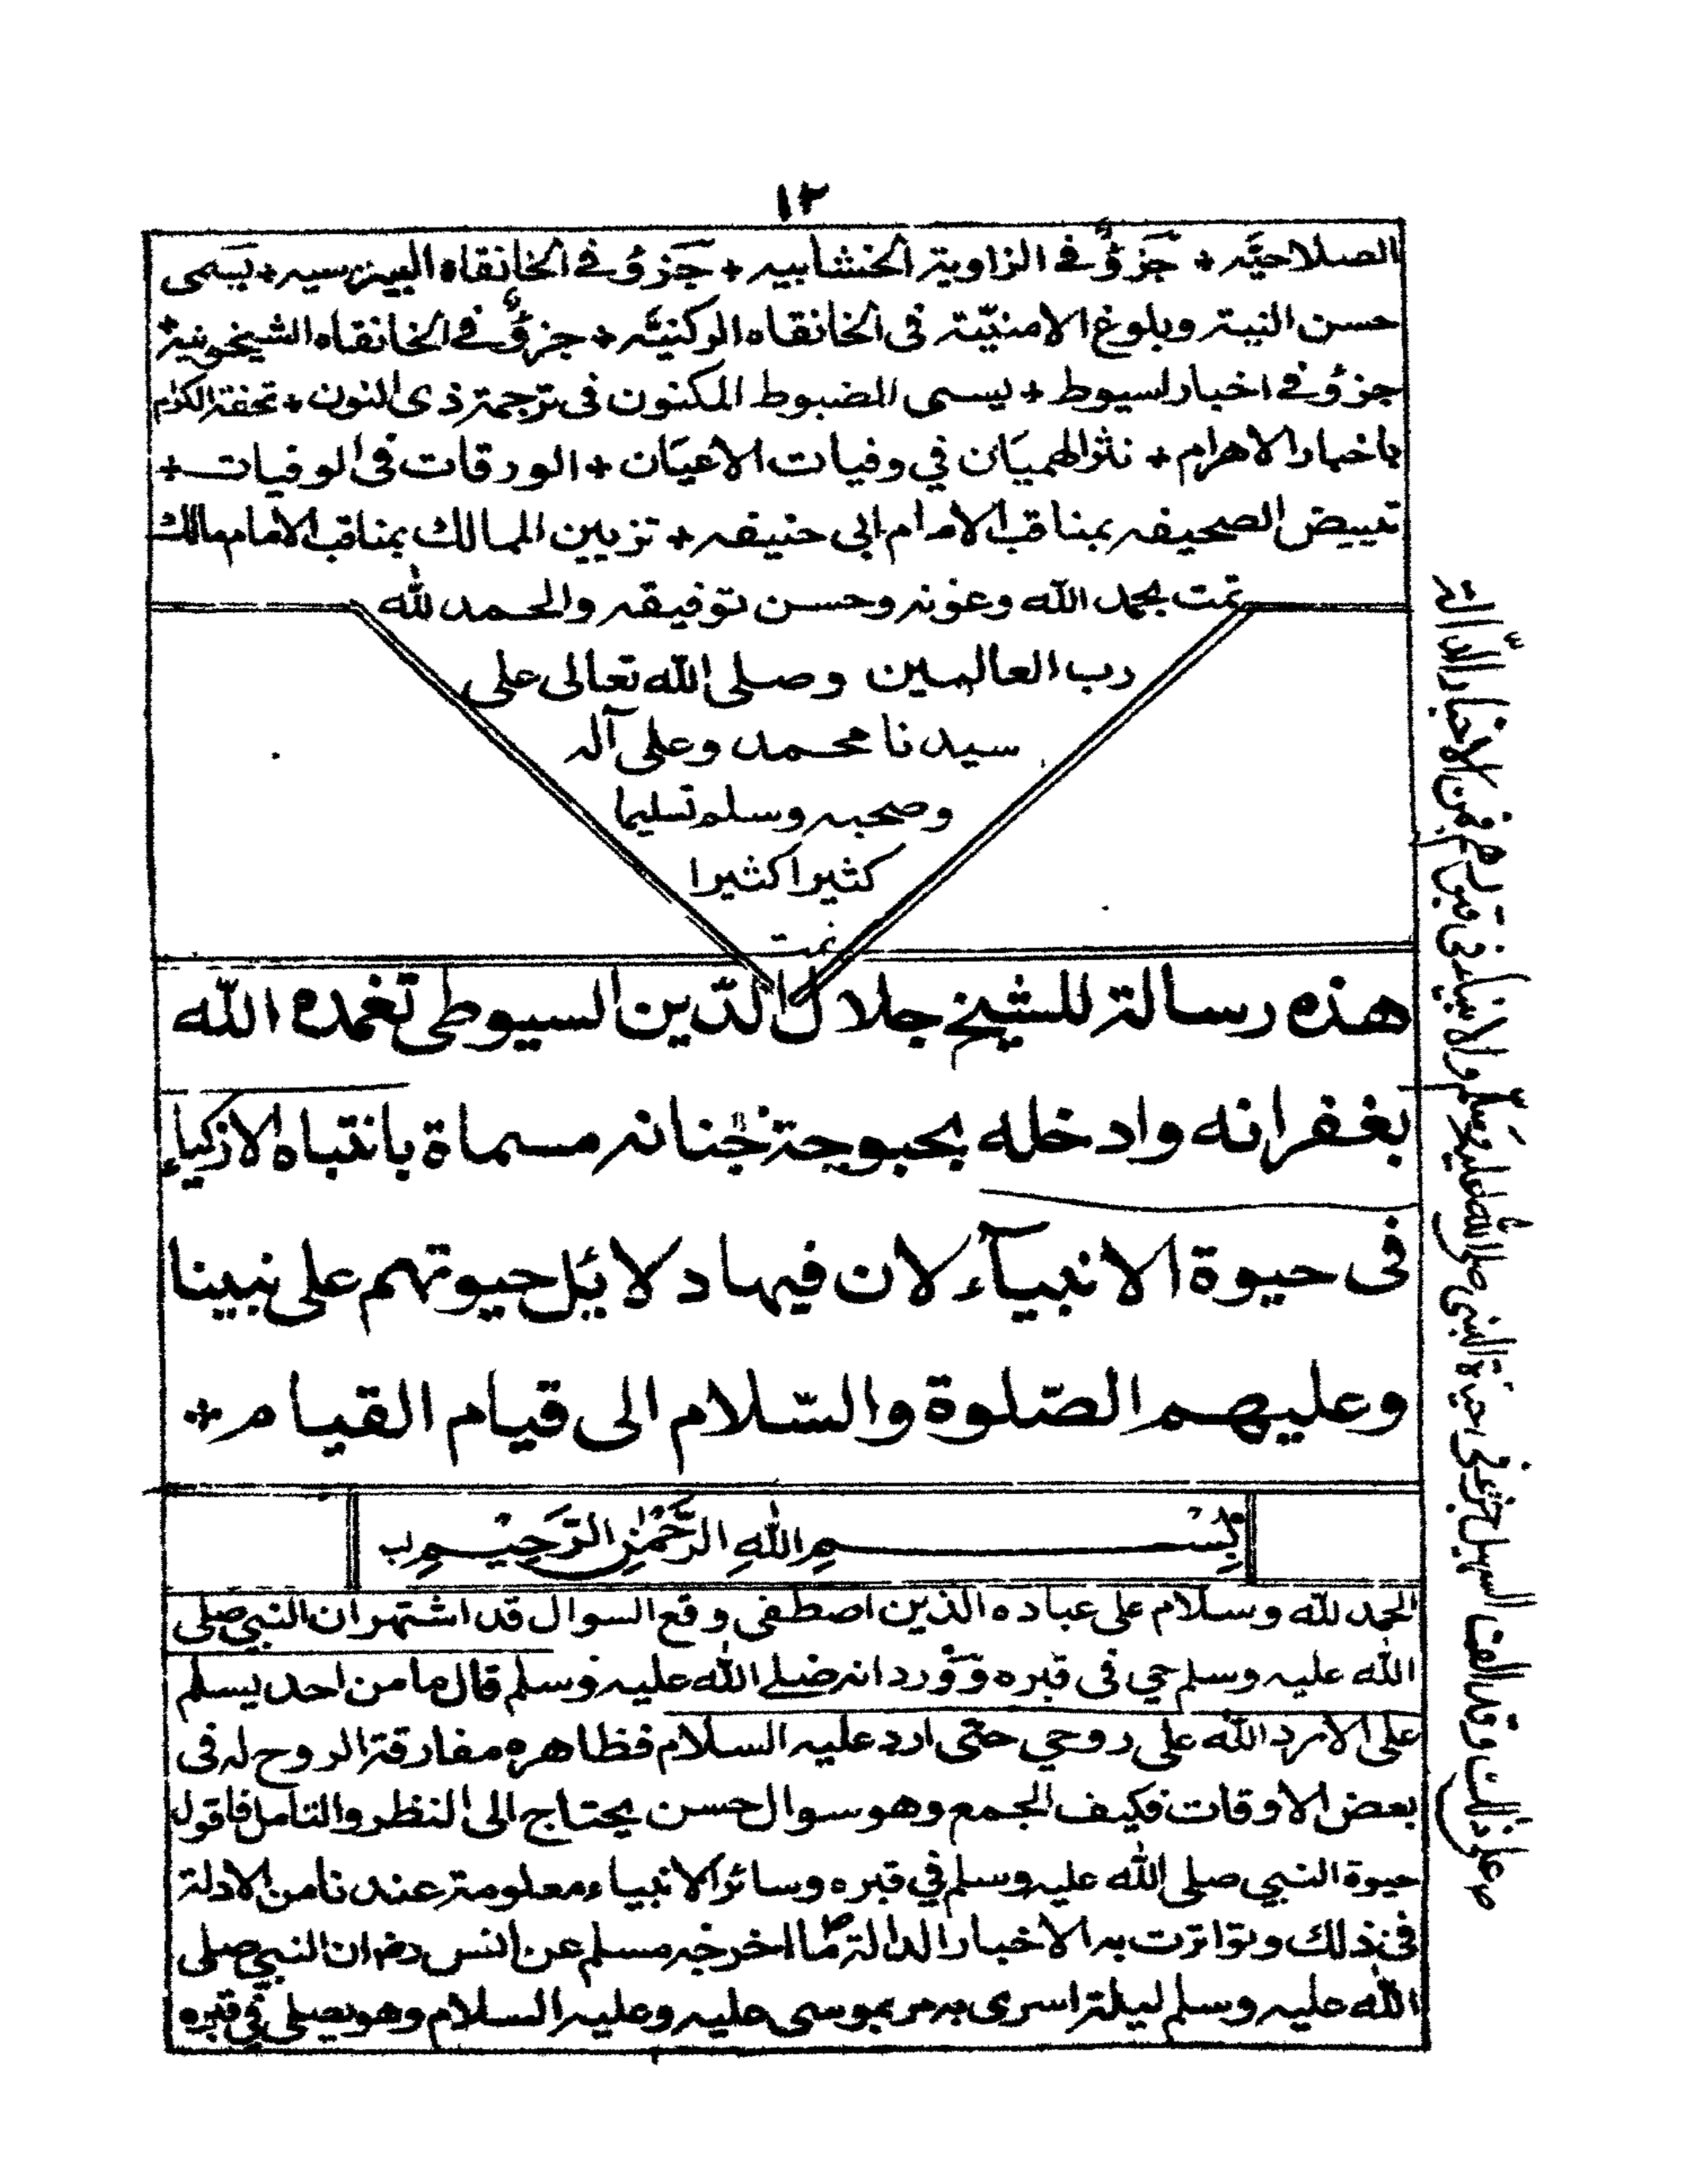 ١٢
الصلاحيَّه + جَزؤٌ في الزاوية الخشابيه + جَزؤ في الخانقاه البيبرسيه + يسَمى
حسن النية وبلوغ الامنيّة فى الخانقاه الركنيَّه + جزؤٌ في الخانقاه الشيخونية +
جزؤ في اخبار اسيوط + يسمى المضبوط المكنون فى ترجمة ذى النون + تحفة الكرام
باخبار الاهرام + نثر الهميَان في وفيات الاعيَان + الورقات فى الوفيات +
تبييض الصحيفه بمناقب الامام ابى حنيفه + تزيين الممالك بمناقب الامام مالك
تمت بحمد الله وعونه وحسن توفيقه والحمد لله
رب العالمين وصلى الله تعالى على
سيدنا محمد وعلى آله
وصحبه وسلم تسليما
كثيرا كثيرا
تمت
هذه رسالة للشيخ جلال الدّين السيوطى تغمده الله
بغفرانه وادخله بحبوحة جنانه مسماة بانتباه الازكياء
فى حيوة الانبيآء لان فيها دلائل حيوتهم على نبينا
وعليهم الصّلوة والسّلام الى قيام القيام +
بِسْمِ اللهِ الرَّحْمٰنِ الرَّحِيْمِ
الحمد لله وسلام على عباده الذين اصطفى وقع السوال قد اشتهر ان النبي صلى
الله عليه وسلم حي فى قبره وَوَرد انه صلے الله عليه وسلم قال ما من احد يسلم
على الا رد الله على روحي حتى ارد عليه السلام فظاهره مفارقة الروح له فى
بعض الاوقات فكيف الجمع وهو سوال حسن يحتاج الى النظر والتامل فاقول
حيوة النبي صلى الله عليه وسلم في قبره وسائر الانبياء معلومة عندنا من الادلة
فى ذلك وتواترت به الاخبار الدالة ما اخرجه مسلم عن انس رض ان النبي صلى
الله عليه وسلم ليلة اسرى به مر بموسى عليه وعليه السلام وهو يصلى في قبره
على ذلك وقد الف السيوطي جزءا فى حيوة النبى صلى الله عليه وسلم والانبياء فى قبورهم فمن الاخبار الدّالة